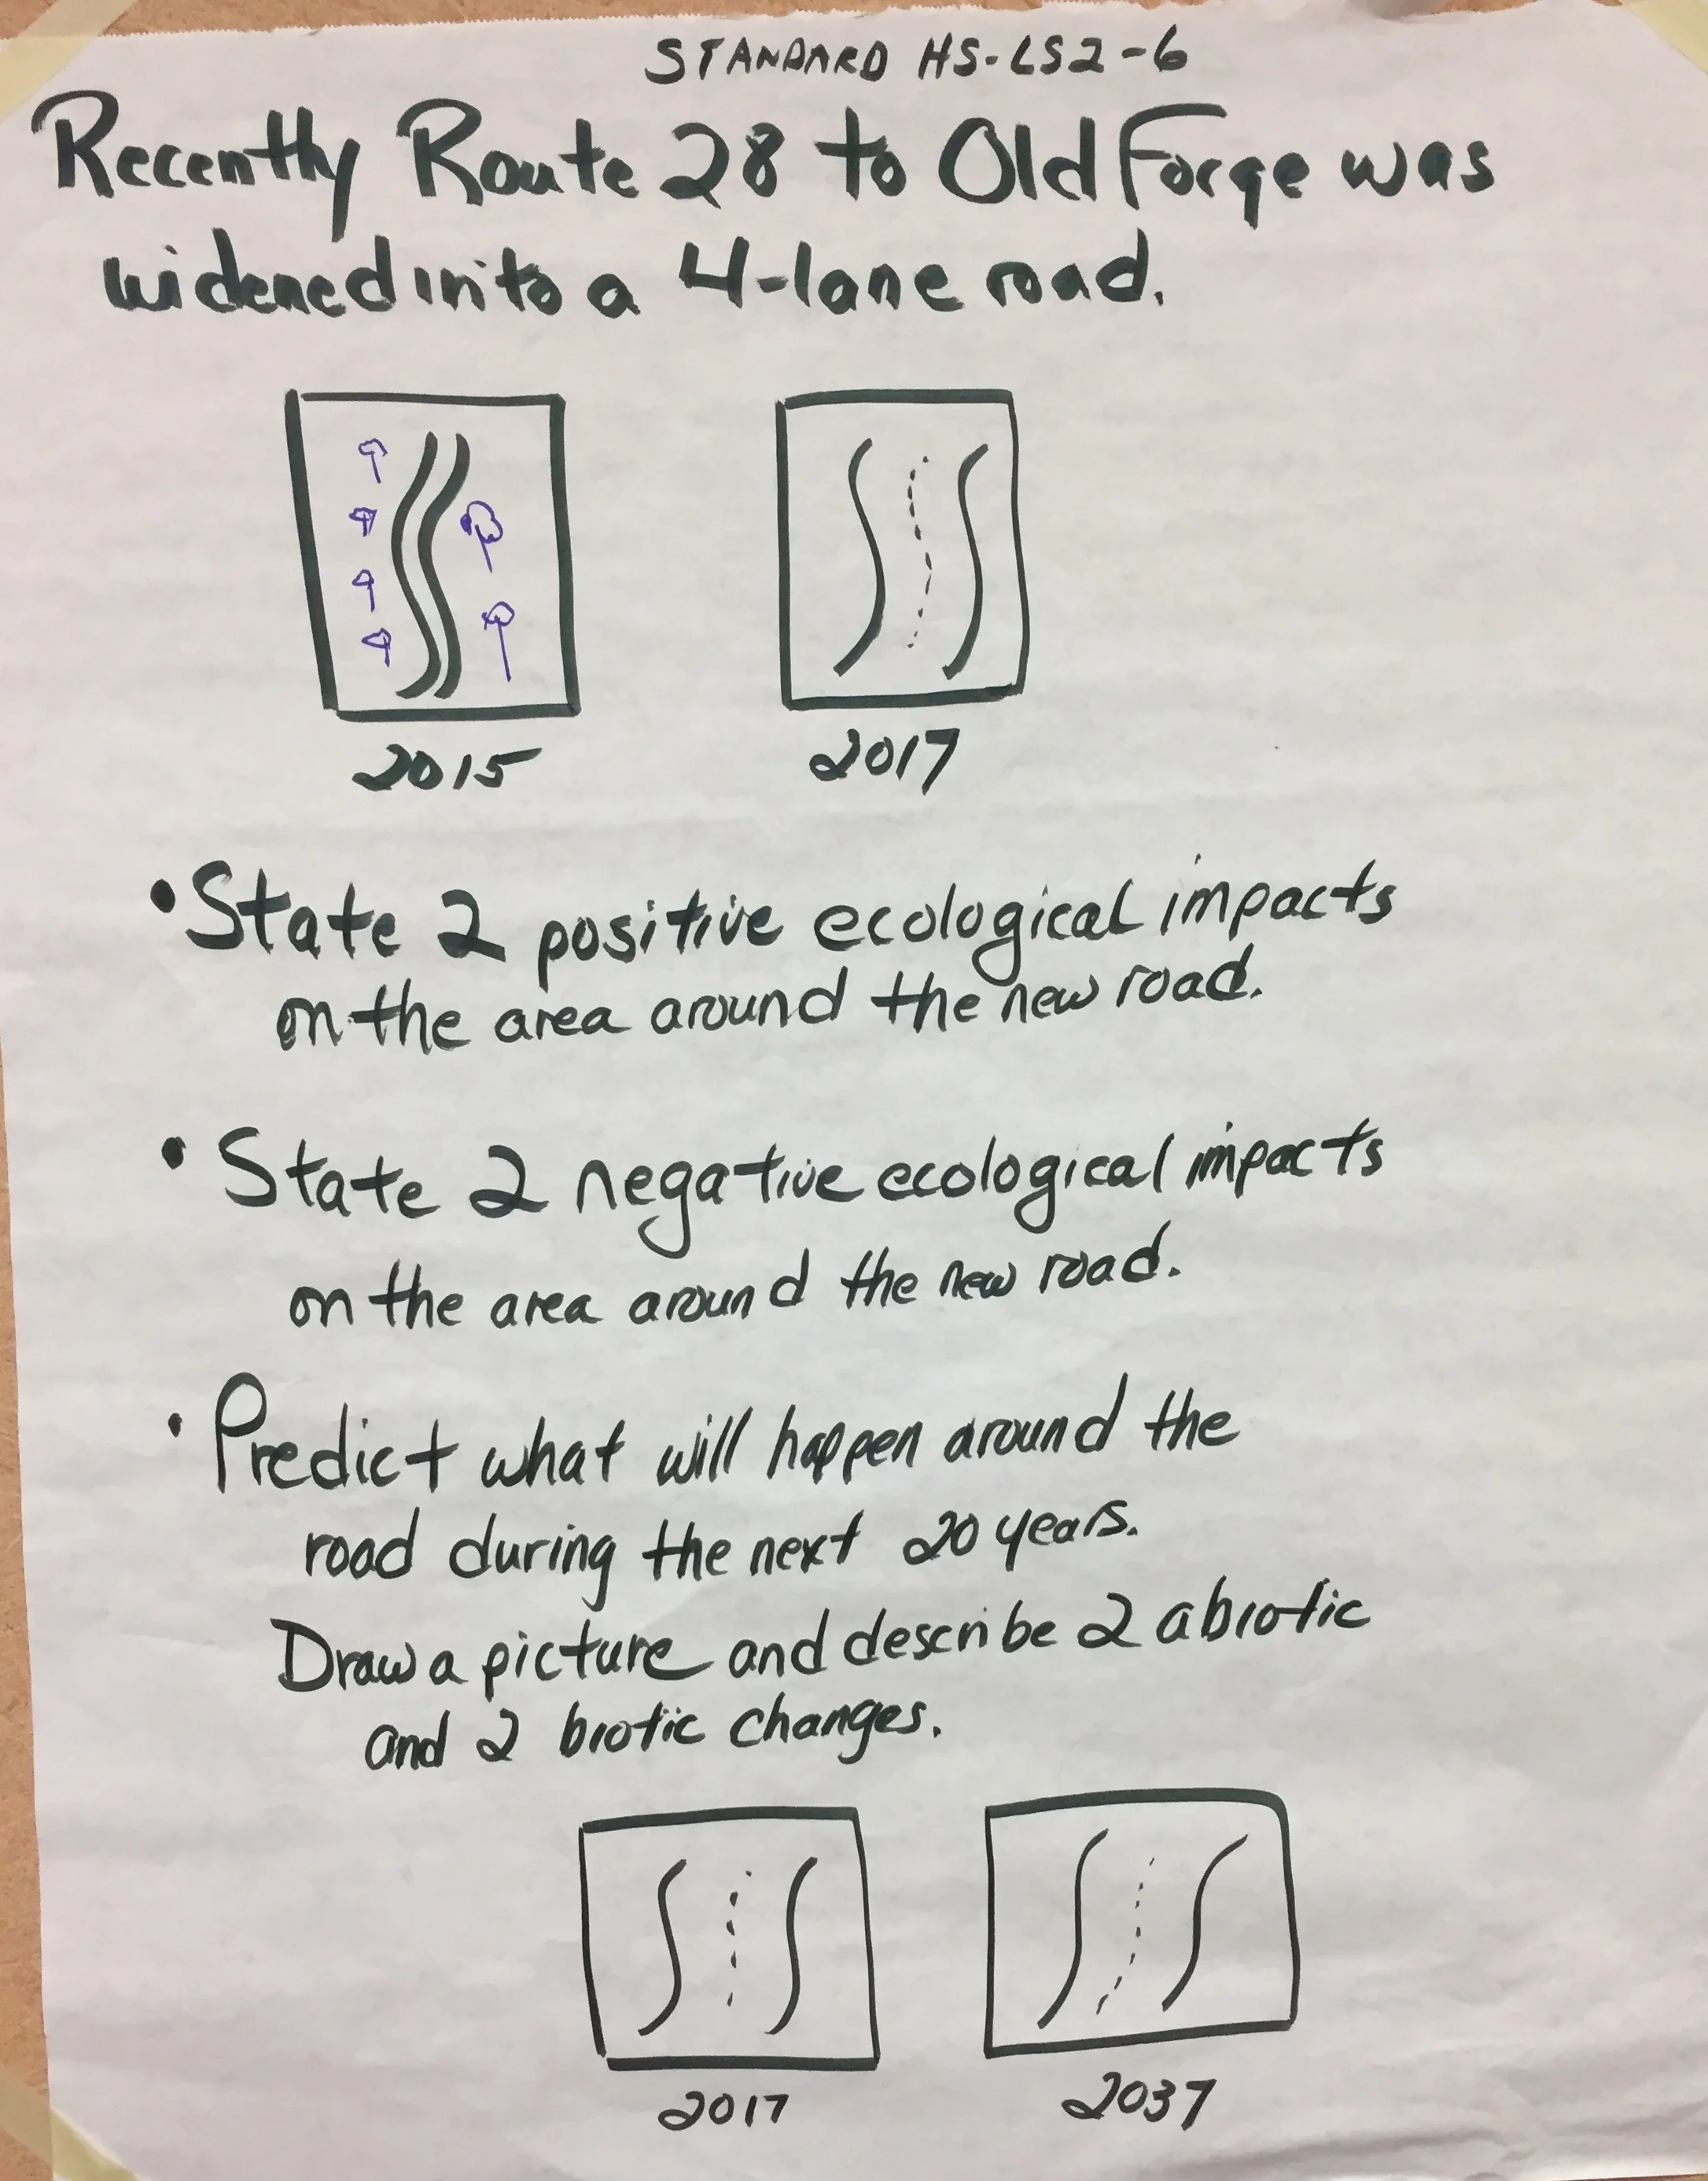 STANDARD HS-LS2-6
Recently Route 28 to Old Forge was
widened into a 4-lane road.
2015 2017
• State 2 positive ecological impacts
on the area around the new road.
• State 2 negative ecological impacts
on the area around the new road.
• Predict what will happen around the
road during the next 20 years.
Draw a picture and describe 2 abiotic
and 2 biotic changes.
2017 2037